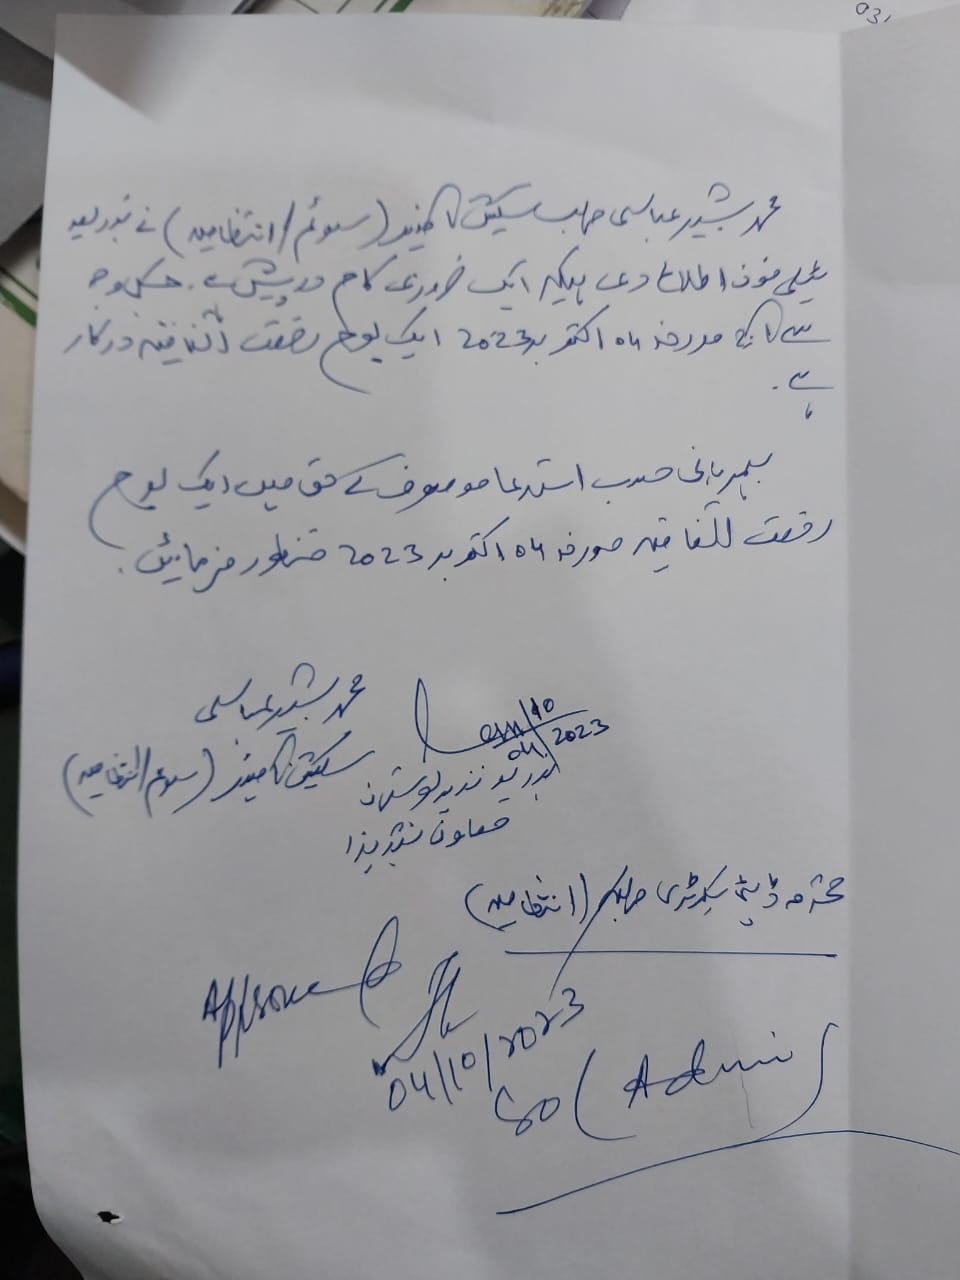 03
محمد بشیر عباسی صاحب سیکشن آفیسر (سوئم/انتظامیہ) نے بذریعہ
ٹیلی فون اطلاع دی ہیکہ ایک ضروری کام درپیش ہے۔ جسکی وجہ
سے آج مورخہ 04 اکتوبر 2023 ایک یوم رخصت اتفاقیہ درکار
ہے۔
بمہربانی حسب استدعا موصوف کے حق میں ایک یوم
رخصت اتفاقیہ مورخہ 04 اکتوبر 2023 منظور فرمائیں۔
محمد بشیر عباسی
سیکشن آفیسر (سوئم/انتظامیہ)
04/10/2023
بذریعہ
معاون
محترمہ ڈپٹی سیکرٹری صاحبہ (انتظامیہ)
Approved
04/10/2023
SO (Admin)